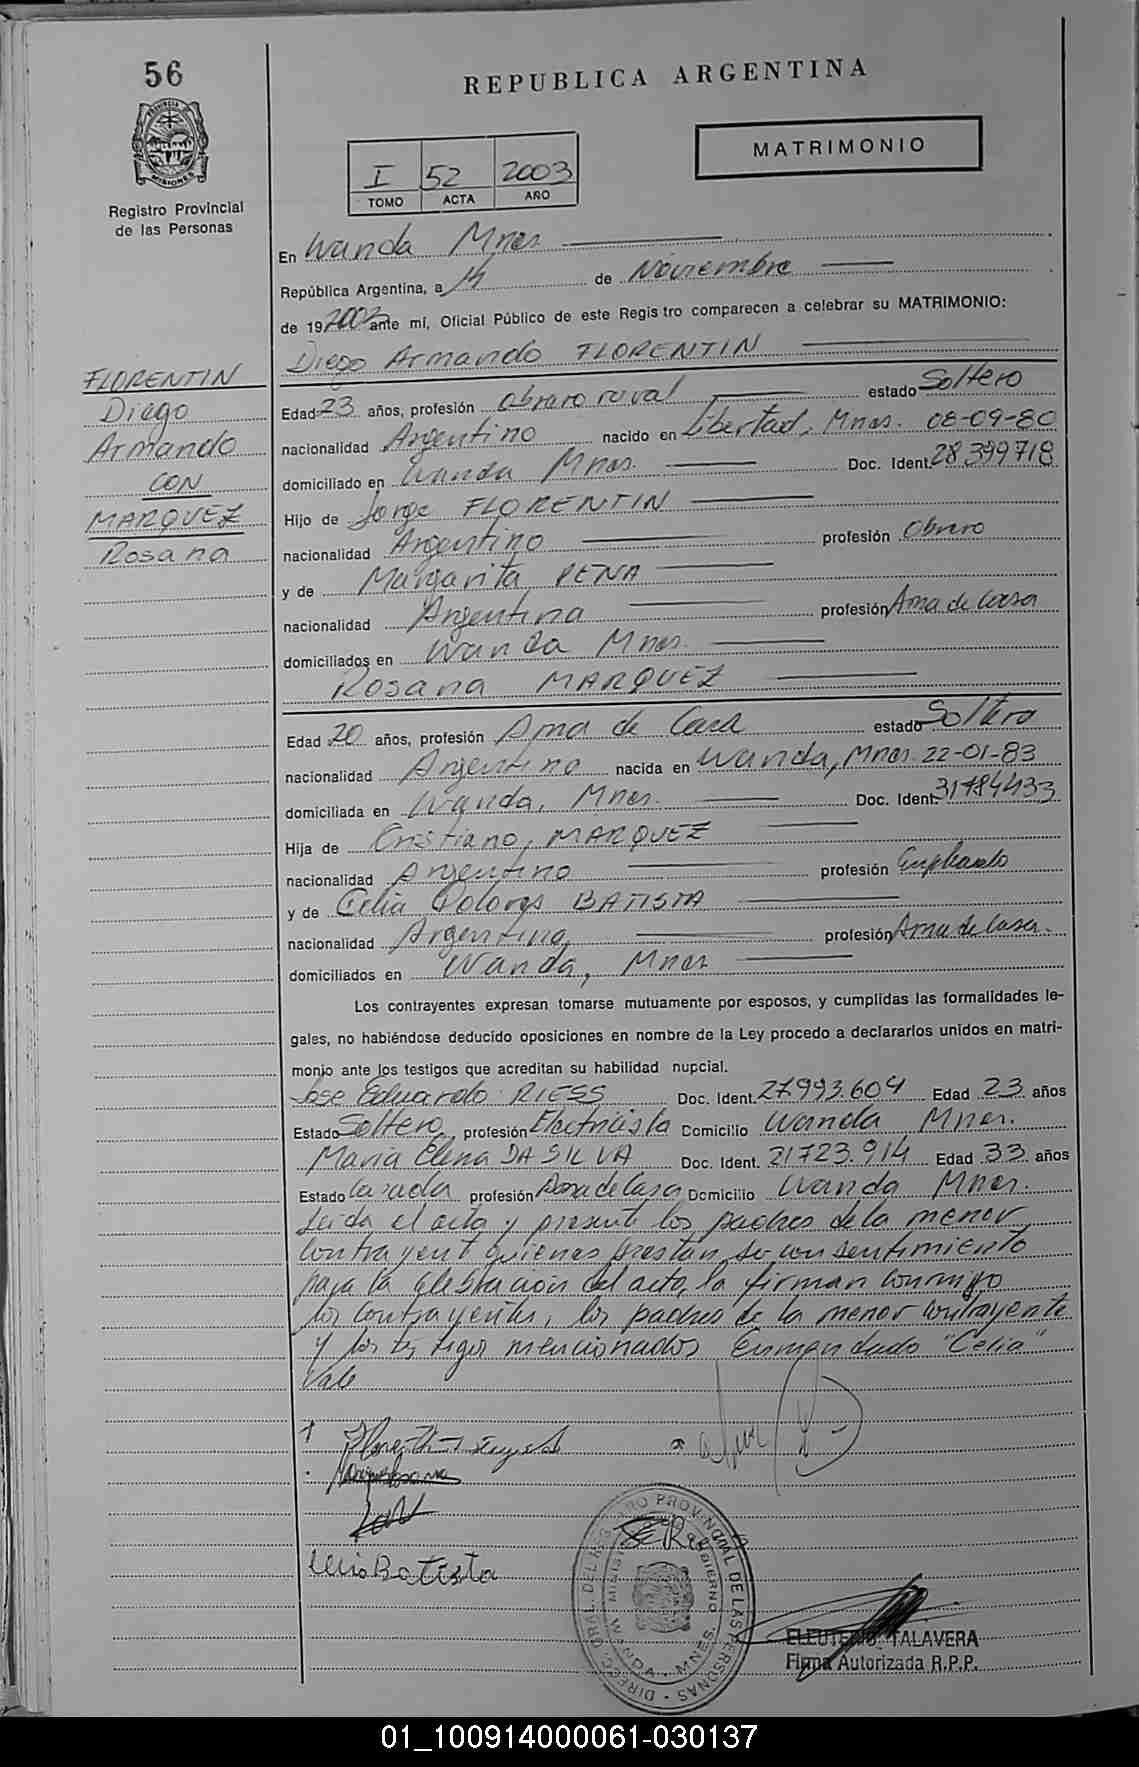 56
REPUBLICA ARGENTINA
PROVINCIA DE MISIONES
MATRIMONIO
I 52 2003
TOMO ACTA AÑO
Registro Provincial
de las Personas
En Wanda Mnes.
República Argentina, a 14 de Noviembre
de 19 2003 ante mí, Oficial Público de este Registro comparecen a celebrar su MATRIMONIO:
Diego Armando FLORENTIN
FLORENTIN
Diego
Armando
CON
MARQUEZ
Rosana
Edad 23 años, profesión obrero rural estado Soltero
nacionalidad Argentino nacido en Libertad, Mnes. 08-09-80
domiciliado en Wanda Mnes. Doc. Ident. 28.399718
Hijo de Jorge FLORENTIN
nacionalidad Argentino profesión Obrero
y de Margarita PENA
nacionalidad Argentina profesión Ama de Casa
domiciliados en Wanda Mnes.
Rosana MARQUEZ
Edad 20 años, profesión Ama de Casa estado Soltera
nacionalidad Argentina nacida en Wanda, Mnes. 22-01-83
domiciliada en Wanda, Mnes. Doc. Ident. 31784433
Hija de Cristiano, MARQUEZ
nacionalidad Argentino profesión Empleado
y de Celia Dolores BATISTA
nacionalidad Argentina, profesión Ama de Casa.
domiciliados en Wanda, Mnes
Los contrayentes expresan tomarse mutuamente por esposos, y cumplidas las formalidades le-
gales, no habiéndose deducido oposiciones en nombre de la Ley procedo a declararlos unidos en matri-
monio ante los testigos que acreditan su habilidad nupcial.
Jose Eduardo RIESS Doc. Ident. 27.993.604 Edad 23 años
Estado Soltero profesión Electricista Domicilio Wanda Mnes.
Maria Elena DA SILVA Doc. Ident. 21723.914 Edad 33 años
Estado Casada profesión Ama de Casa Domicilio Wanda Mnes.
Leida el acta y presente los padres de la menor
contrayente quienes prestan su consentimiento
para la celebración del acto, la firman conmigo
los contrayentes, los padres de la menor contrayente
y los testigos mencionados Enmendado "Celia"
Vale
Celia Batista
DIREC. GRAL. DEL REGISTRO PROVINCIAL DE LAS PERSONAS
WANDA - MNES.
ELEUTERIO TALAVERA
Firma Autorizada R.P.P.
01_100914000061-030137